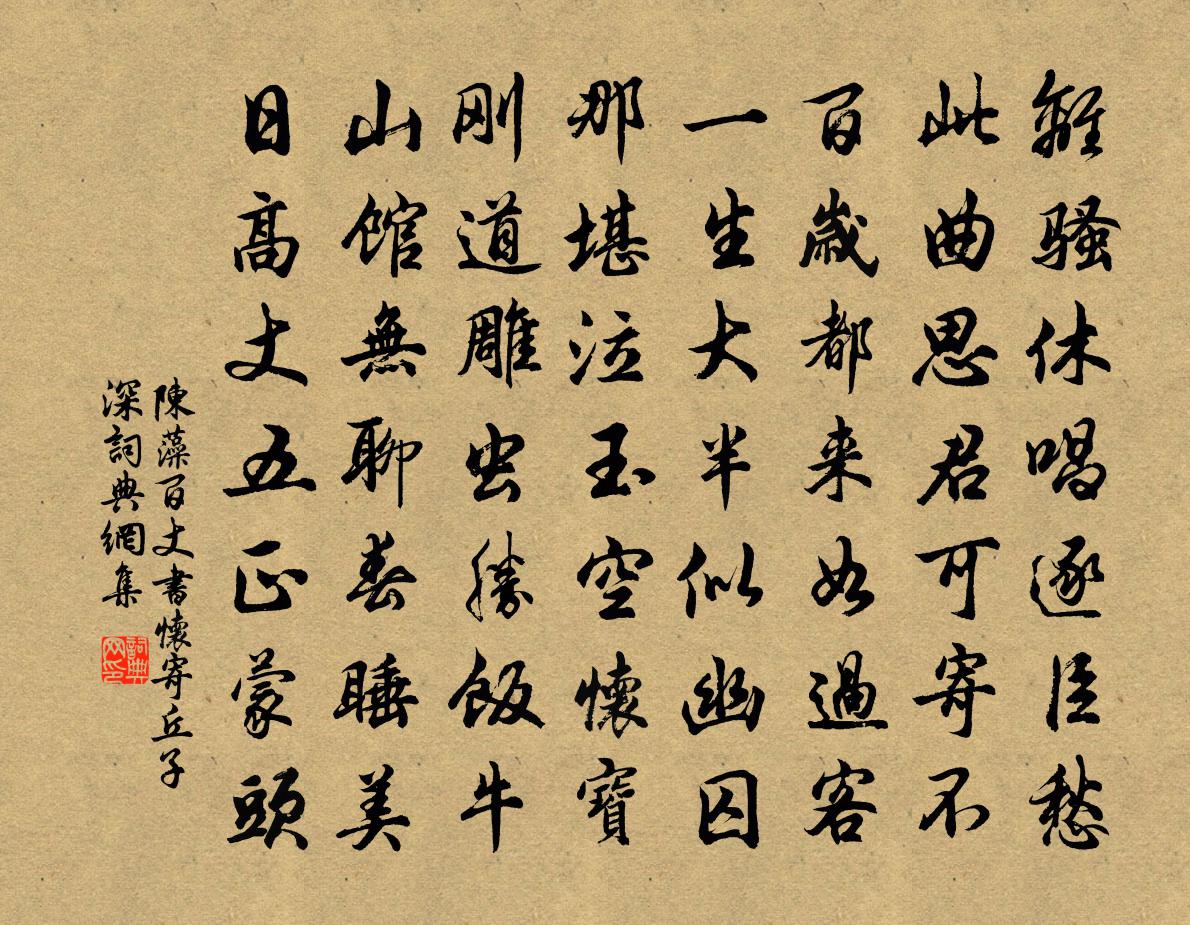 離騷休唱逐臣愁
此曲思君可寄不
百歲都来如過客
一生大半似幽囚
那堪泣玉空懷寶
剛道雕虫勝飯牛
山館無聊春睡美
日高丈五正蒙頭
陳藻百丈書懷寄丘子
深詞典網集
詞典網印